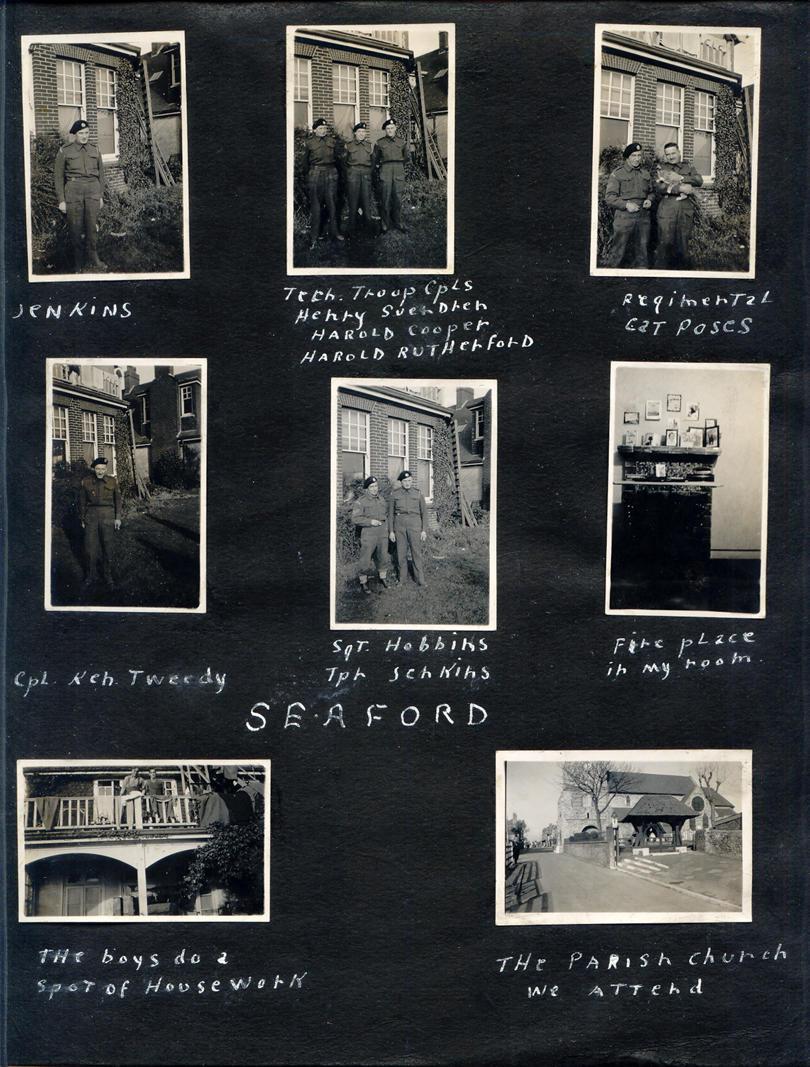 JENKINS
Tech. Troop Cpls
Henry Suendren
HAROLD Cooper
HAROLD RUTHERFORD
Regimental
Cat Poses
Cpl. Ken. Tweedy
Sgt. Hobbins
Tpr Jenkins
Fire place
in my room.
SEAFORD
THe boys do a
Spot of HouseWork
THe PARISH church
We ATTend